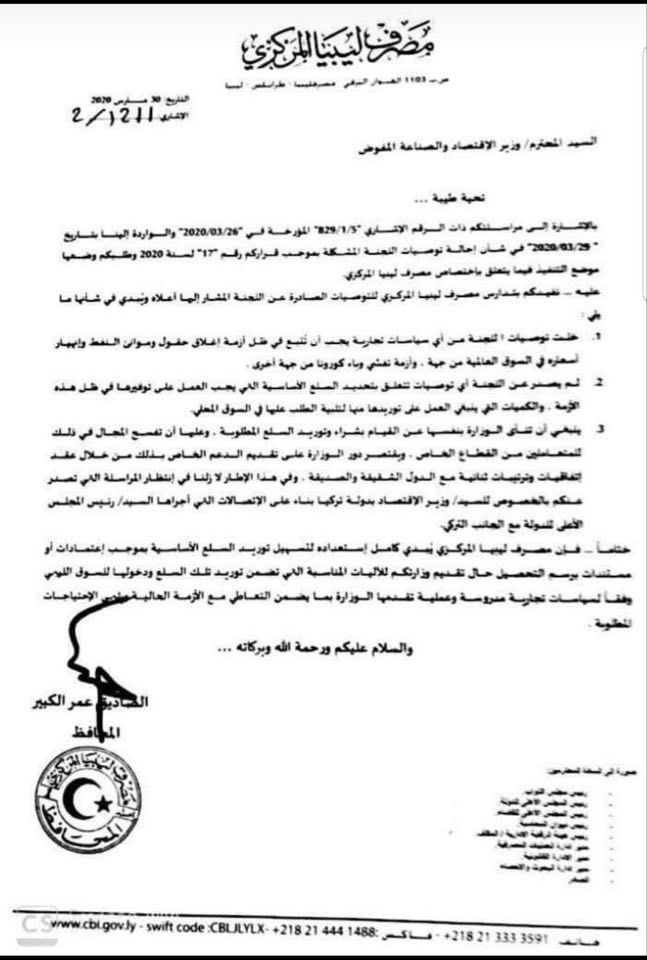 مصرف ليبيا المركزي
ص.ب 1103 العنوان البرقي مصرفليبيا - طرابلس - ليبيا
التاريخ: 30 مارس 2020
الإشاري:
السيد المحترم/ وزير الإقتصاد والصناعة المفوض
تحية طيبة ...
بالإشارة إلى مراسلتكم ذات الرقم الإشاري "829/1/5" المؤرخة في "2020/03/26" والواردة إلينا بتاريخ
"2020/03/29" في شأن إحالة توصيات اللجنة المشكلة بموجب قراركم رقم "17" لسنة 2020 وطلبكم وضعها
موضع التنفيذ فيما يتعلق بإختصاص مصرف ليبيا المركزي.
عليه ... نفيدكم بتدارس مصرف ليبيا المركزي للتوصيات الصادرة عن اللجنة المشار إليها أعلاه ويُبدي في شأنها ما
يلي :
1. خلت توصيات اللجنة من أي سياسات تجارية يجب أن تُتبع في ظل أزمة إغلاق حقول وموانئ النفط وإنهيار
أسعاره في السوق العالمية من جهة , وأزمة تفشي وباء كورونا من جهة أخرى .
2. لم يصدر عن اللجنة أي توصيات تتعلق بتحديد السلع الأساسية التي يجب العمل على توفيرها في ظل هذه
الأزمة , والكميات التي ينبغي العمل على توريدها منها لتلبية الطلب عليها في السوق المحلي.
3. ينبغي أن تنأى الوزارة بنفسها عن القيام بشراء وتوريد السلع المطلوبة , وعليها أن تفسح المجال في ذلك
للمتعاملين من القطاع الخاص , ويقتصر دور الوزارة على تقديم الدعم الخاص بذلك من خلال عقد
إتفاقيات وترتيبات ثنائية مع الدول الشقيقة والصديقة , وفي هذا الإطار لا زلنا في إنتظار المراسلة التي تصدر
عنكم بالخصوص للسيد/ وزير الإقتصاد بدولة تركيا بناء على الإتصالات التي أجراها السيد/ رئيس المجلس
الأعلى للدولة مع الجانب التركي.
ختاماً ... فإن مصرف ليبيا المركزي يُبدي كامل إستعداده لتسهيل توريد السلع الأساسية بموجب إعتمادات أو
مستندات برسم التحصيل حال تقديم وزارتكم للآليات المناسبة التي تضمن توريد تلك السلع ودخولها للسوق الليبي
وفقاً لسياسات تجارية مدروسة وعملية تقدمها الوزارة بما يضمن التعاطي مع الأزمة الحالية الإحتياجات
المطلوبة .
والسلام عليكم ورحمة الله وبركاته ...
الصديق عمر الكبير
المحافظ
مصرف ليبيا المركزي
المحافظ
صورة إلى السادة المحترمين:
- رئيس مجلس النواب.
- رئيس المجلس الأعلى للدولة.
- رئيس المجلس الأعلى للقضاء.
- رئيس ديوان المحاسبة.
- رئيس هيئة الرقابة الإدارية / المكلف.
- مدير إدارة العمليات المصرفية.
- مدير الإدارة القانونية.
- مدير إدارة البحوث والإحصاء.
CS
www.cbl.gov.ly - swift code :CBLJLYLX- +218 21 444 1488: هاتف +218 21 333 3591 - فاكس